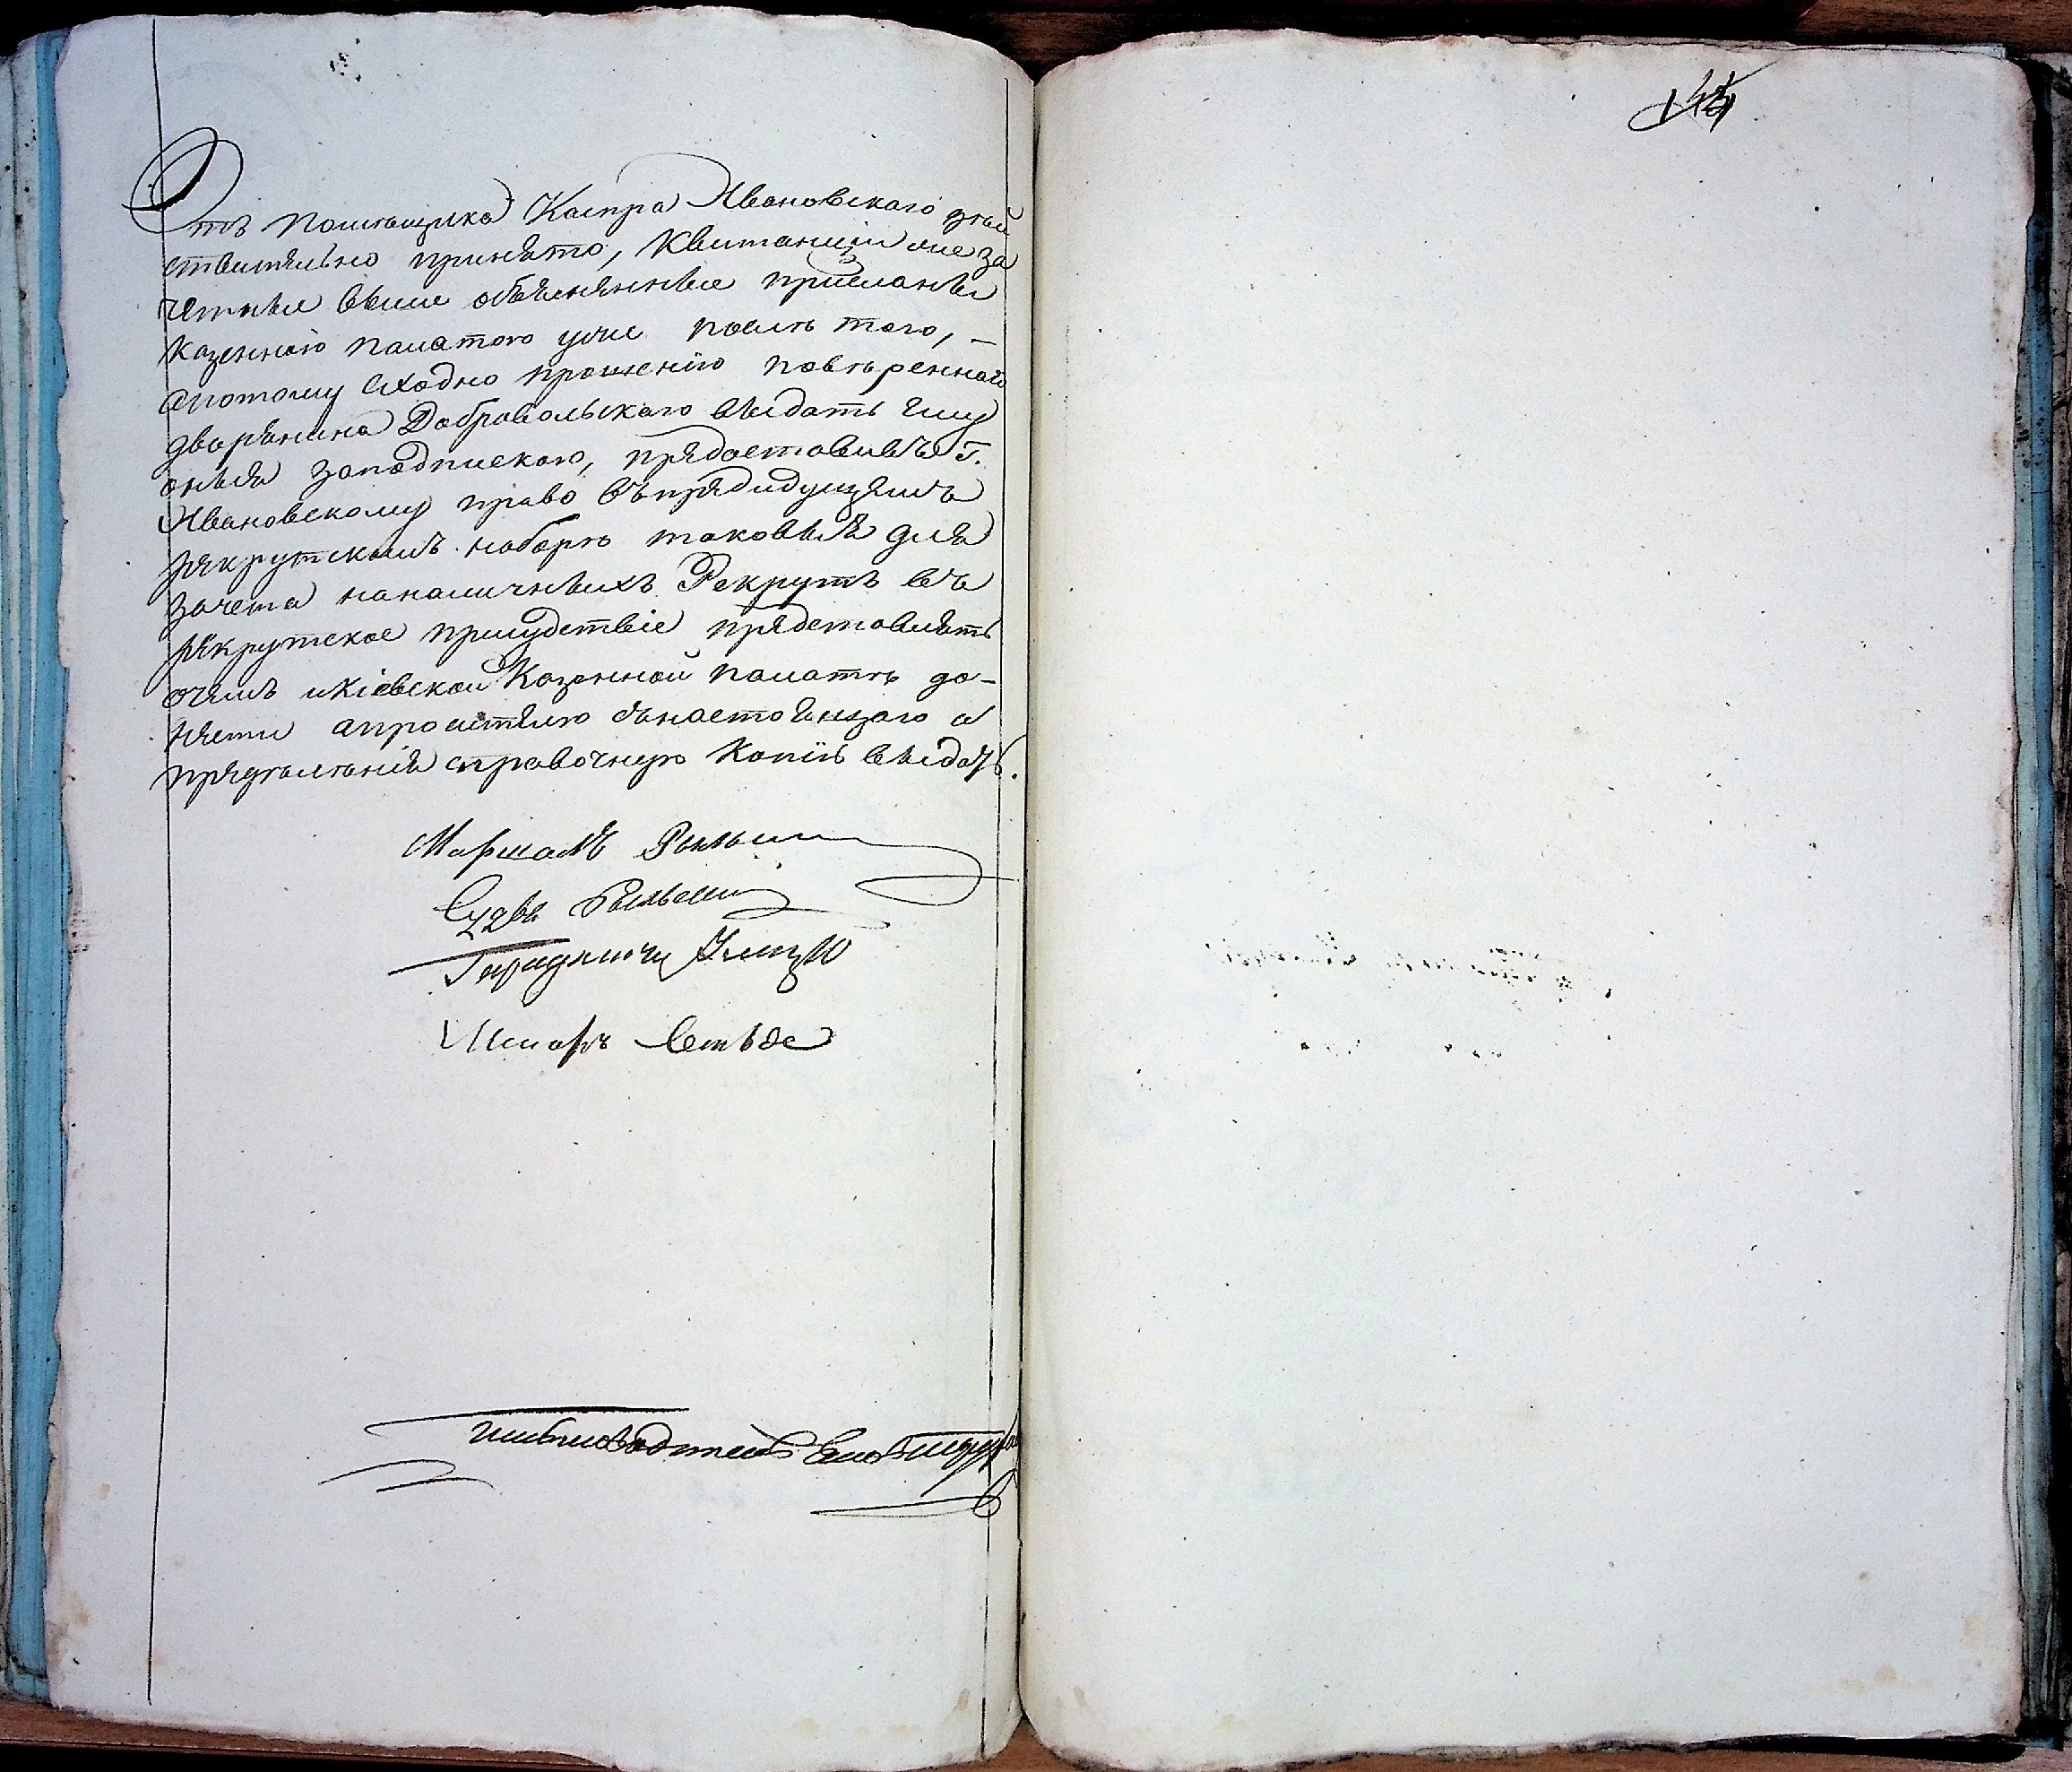 Отъ помѣщика Каспра Ивановскаго дѣй
ствительно принято, Квитанціи же за
четныя выше объясненныя присланы
Казенною палатою уже послѣ того, —
апотому сходно прошенію повѣреннаго
дворянина Добровольскаго выдать ему
оныя заподпискою, предоставивъ Г.
Ивановскому право въпредидущемъ
рекрутскомъ наборѣ таковыя для
зачета наналичныхъ Рекрутъ въ
рекрутское присудствіе представлять
очемъ иКіевской Казенной палатѣ до-
нести апросителю сънастоящаго о
предѣленія справочную Копію выдать.
Маршалъ
Судья
Городничи